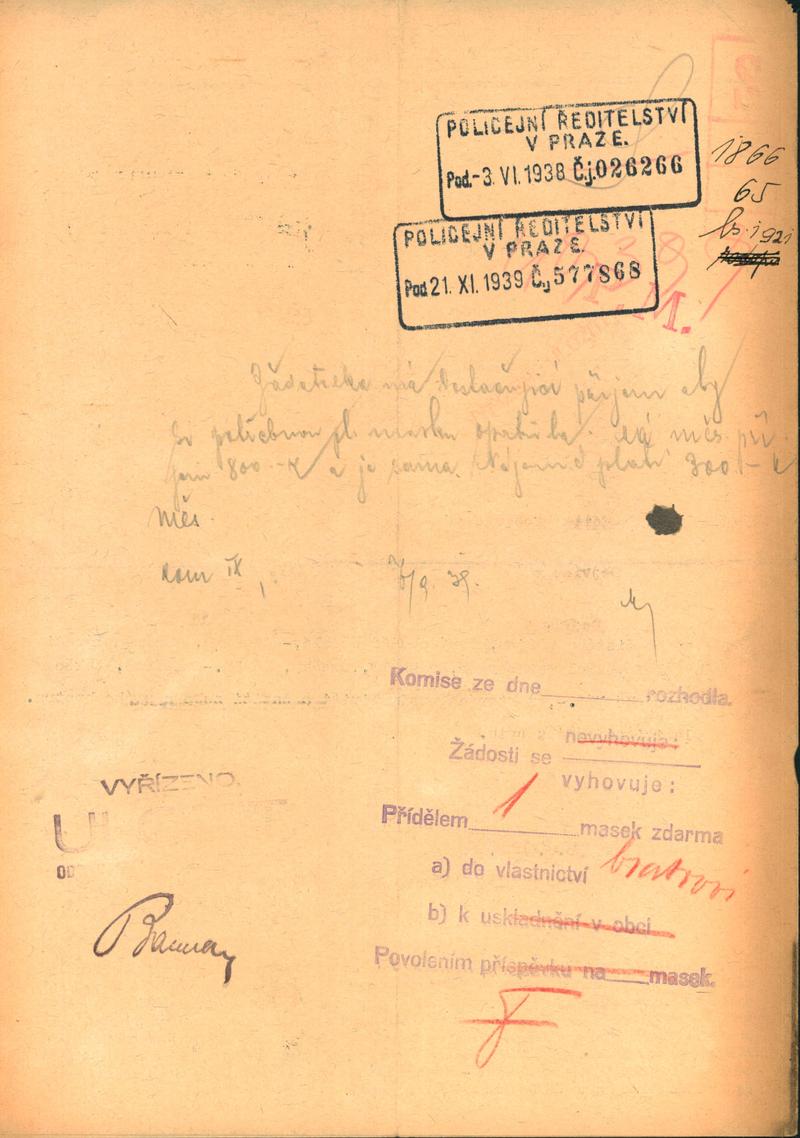 POLICEJNÍ ŘEDITELSTVÍ
V PRAZE.
Pod.-3. VI. 1938 Č.j.026266
1866
65
POLICEJNÍ ŘEDITELSTVÍ
V PRAZE.
Pod 21. XI. 1939 Čj 577868
M.
Žadatelka má dostačující příjem aby
si potřebnou pl. masku opatřila. má měs. pří
jem 800.-K a je sama. Nájem platí 300.- K
měs.
kom IX
Komise ze dne rozhodla.
nevyhovuje:
Žádosti se
vyhovuje:
Přídělem 1 masek zdarma
a) do vlastnictví bratrovi
b) k uskladnění v obci
Povolením příspěvku na masek.
VYŘÍZENO.